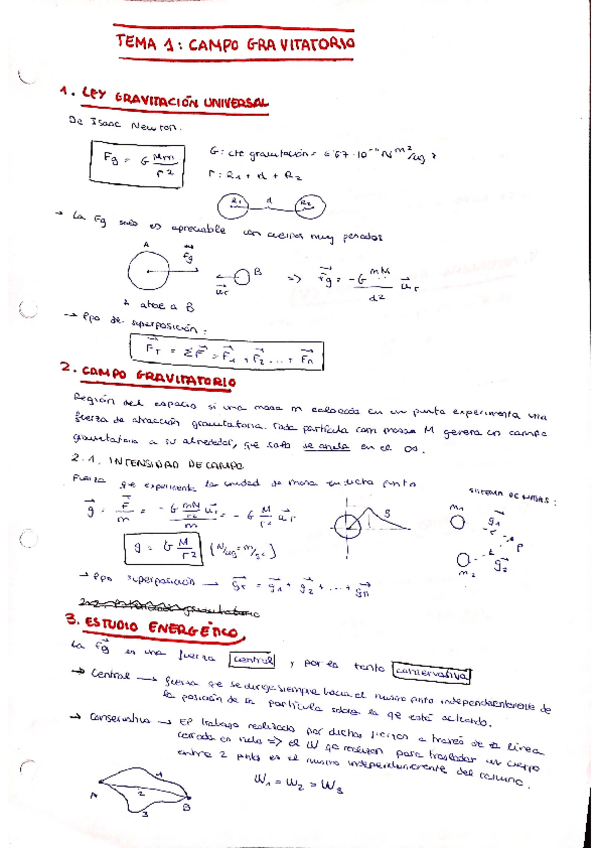 TEMA 1: CAMPO GRAVITATORIO
1. LEY GRAVITACIÓN UNIVERSAL
De Isaac Newton.
Fg = G Mm/r²
G: cte gravitación = 6'67·10⁻¹¹ N m²/kg²
r: R1 + d + R2
R1 d R2
→ La Fg solo es apreciable con cuerpos muy pesados
A Fg B
ur
=> Fg = -G mM/d² ur
A atrae a B
→ Ppo de superposición:
FT = ΣF = F1 + F2 ... + Fn
2. CAMPO GRAVITATORIO
Región del espacio si una masa m colocada en un punto experimenta una
fuerza de atracción gravitatoria. Toda partícula con masa M genera un campo
gravitatorio a su alrededor, que solo se anula en el ∞.
2.1. INTENSIDAD DE CAMPO
Fuerza que experimenta la unidad de masa en dicho punto
SISTEMA DE MASAS:
g = F/m = -G mM/r² ur / m = -G M/r² ur
g
m1 g1 P
m2 g2
g = G M/r² (N/kg = m/s²)
→ Ppo superposición → gT = g1 + g2 + ... + gn
3. ESTUDIO ENERGÉTICO
La Fg es una fuerza central, y por lo tanto conservativa
→ Central → fuerza que se dirige siempre hacia el mismo punto independientemente de
la posición de la partícula sobre la que está actuando.
→ Conservativa → El trabajo realizado por dichas fuerzas a través de una línea
cerrada es nulo => el W que realizan para trasladar un cuerpo
entre 2 puntos es el mismo independientemente del camino.
A 1 2 3 B
W1 = W2 = W3